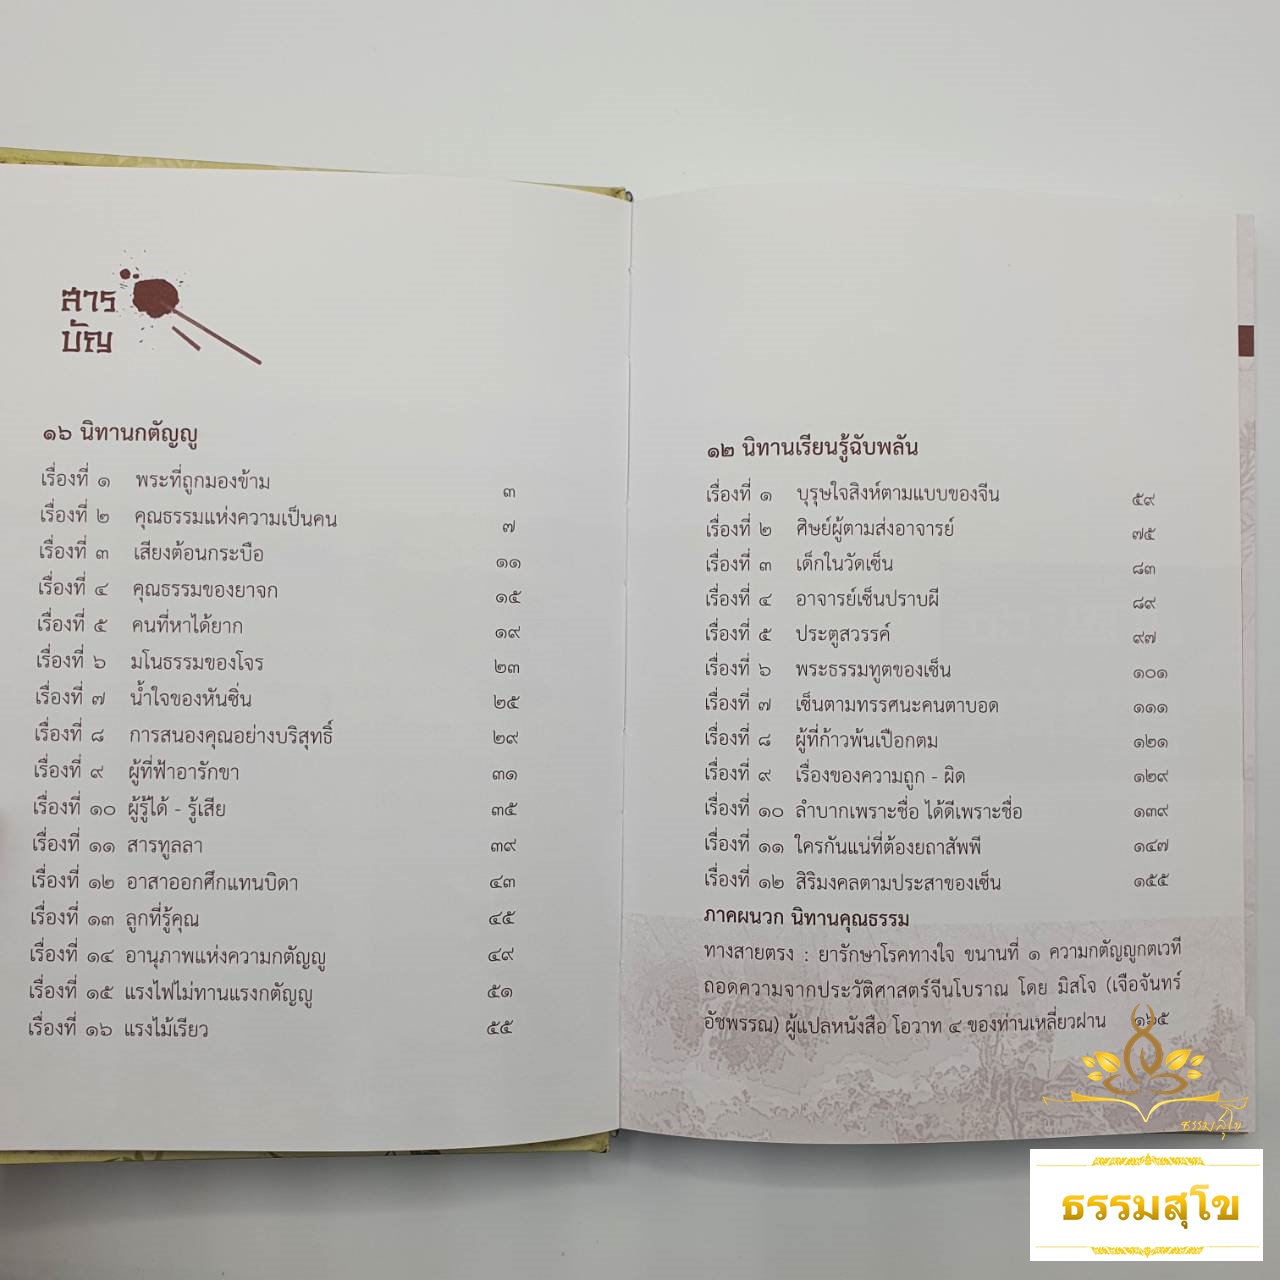 สาร
บัญ
๑๖ นิทานกตัญญู
เรื่องที่ ๑ พระที่ถูกมองข้าม ๓
เรื่องที่ ๒ คุณธรรมแห่งความเป็นคน ๗
เรื่องที่ ๓ เสียงต้อนกระบือ ๑๑
เรื่องที่ ๔ คุณธรรมของยาจก ๑๕
เรื่องที่ ๕ คนที่หาได้ยาก ๑๙
เรื่องที่ ๖ มโนธรรมของโจร ๒๓
เรื่องที่ ๗ น้ำใจของหันซิ่น ๒๕
เรื่องที่ ๘ การสนองคุณอย่างบริสุทธิ์ ๒๙
เรื่องที่ ๙ ผู้ที่ฟ้าอารักขา ๓๑
เรื่องที่ ๑๐ ผู้รู้ได้ - รู้เสีย ๓๕
เรื่องที่ ๑๑ สารทูลลา ๓๙
เรื่องที่ ๑๒ อาสาออกศึกแทนบิดา ๔๓
เรื่องที่ ๑๓ ลูกที่รู้คุณ ๔๕
เรื่องที่ ๑๔ อานุภาพแห่งความกตัญญู ๔๙
เรื่องที่ ๑๕ แรงไฟไม่ทานแรงกตัญญู ๕๑
เรื่องที่ ๑๖ แรงไม้เรียว ๕๕
๑๒ นิทานเรียนรู้ฉับพลัน
เรื่องที่ ๑ บุรุษใจสิงห์ตามแบบของจีน ๕๙
เรื่องที่ ๒ ศิษย์ผู้ตามส่งอาจารย์ ๗๕
เรื่องที่ ๓ เด็กในวัดเซ็น ๘๓
เรื่องที่ ๔ อาจารย์เซ็นปราบผี ๘๙
เรื่องที่ ๕ ประตูสวรรค์ ๙๗
เรื่องที่ ๖ พระธรรมทูตของเซ็น ๑๐๑
เรื่องที่ ๗ เซ็นตามทรรศนะคนตาบอด ๑๑๑
เรื่องที่ ๘ ผู้ที่ก้าวพ้นเปือกตม ๑๒๑
เรื่องที่ ๙ เรื่องของความถูก - ผิด ๑๒๙
เรื่องที่ ๑๐ ลำบากเพราะชื่อ ได้ดีเพราะชื่อ ๑๓๙
เรื่องที่ ๑๑ ใครกันแน่ที่ต้องยถาสัพพี ๑๔๗
เรื่องที่ ๑๒ สิริมงคลตามประสาของเซ็น ๑๕๕
ภาคผนวก นิทานคุณธรรม
ทางสายตรง : ยารักษาโรคทางใจ ขนานที่ ๑ ความกตัญญูกตเวที
ถอดความจากประวัติศาสตร์จีนโบราณ โดย มิสโจ (เจือจันทร์
อัชพรรณ) ผู้แปลหนังสือ โอวาท ๔ ของท่านเหลี่ยวฝาน ๑๖๕
ธรรมสุโข
ธรรมสุโข